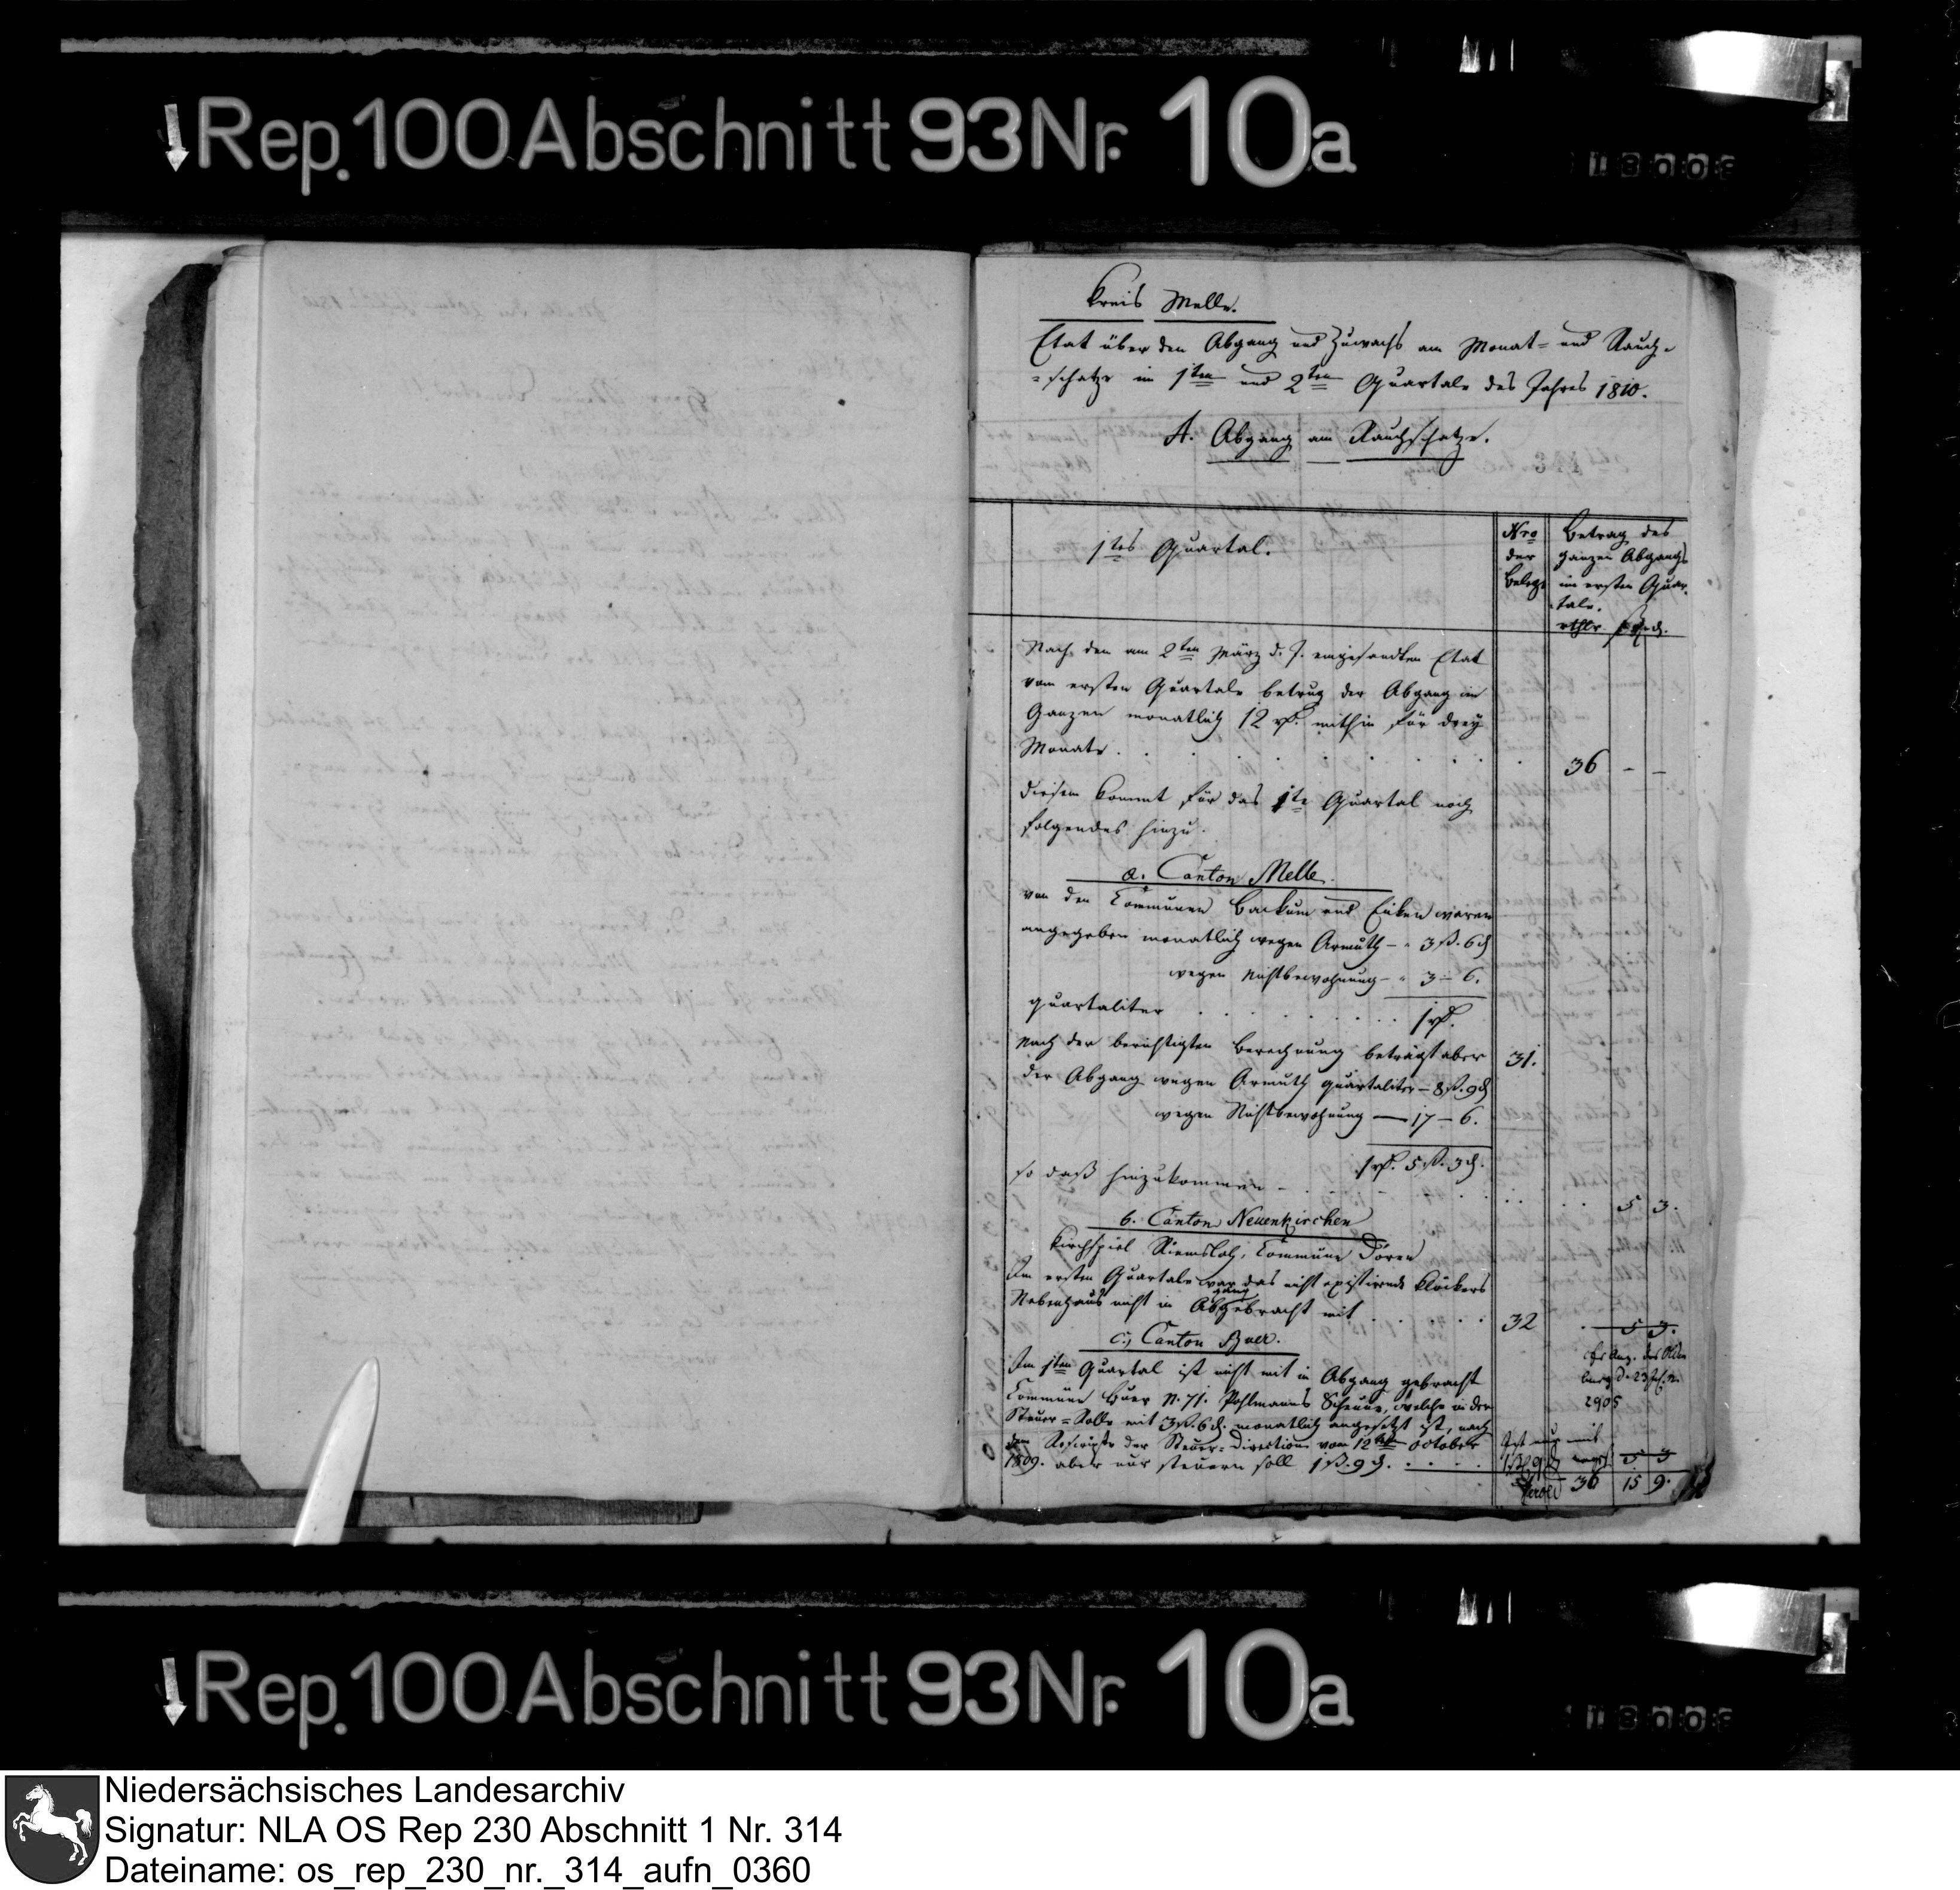 Rep. 100 Abschnitt 93 Nr. 10a
18008
Kreis Melle.
Etat über den Abgang und Zuwachs am Monat= und Rauch=
=schatze im 1ten und 2ten Quartale des Jahres 1810.
A. Abgang am Rauchschatze.
1tes Quartal.
Nro der Belege
Betrag des
ganzen Abgangs
im ersten Quar-
tale.
rthlr ß d.
Nach dem am 2ten März d. J. eingesandten Etat
vom ersten Quartale betrug der Abgang im
Ganzen monatlich 12 rth. mithin für drey
Monate . . . . . . . . . 36 – –
diesem kommt für das 1te Quartal noch
folgendes hinzu.
a. Canton Melle.
von den Communen Backum und Eicken waren
angegeben monatlich wegen Armuth – " 3 ß. 6 d
wegen Nichtbewohnung – " 3 – 6.
quartaliter . . . . . . . . 1 rth.
Nach der berichtigten Berechnung beträgt aber 31.
der Abgang wegen Armuth quartaliter – 8 ß. 9 d
wegen Nichtbewohnung — 17 – 6.
1 rth. 5 ß. 3 d.
so daß hinzukommen – . . . . . . . 5 3.
b. Canton Neuenkirchen
Kirchspiel Riemsloh, Commune Dören
Im ersten Quartale war das nicht existirende Klöckers
Nebenhaus nicht in Abgang gebracht mit . . . . . 32 . 5 3.
c., Canton Buer.
Im 1ten Quartal ist nicht mit in Abgang gebracht
Commune Buer N. 71. Pohlmanns Scheune, welche in der
2905
Steuer=Rolle mit 3 ß. 6 d. monatlich angesetzt ist, nach
dem Rescripte der Steuer=Direction vom 12ten October
1809. aber nur steuern soll 1 ß. 9 d. . . . . 5 3
36 15 9.
Rep. 100 Abschnitt 93 Nr. 10a
18008
Niedersächsisches Landesarchiv
Signatur: NLA OS Rep 230 Abschnitt 1 Nr. 314
Dateiname: os_rep_230_nr._314_aufn_0360